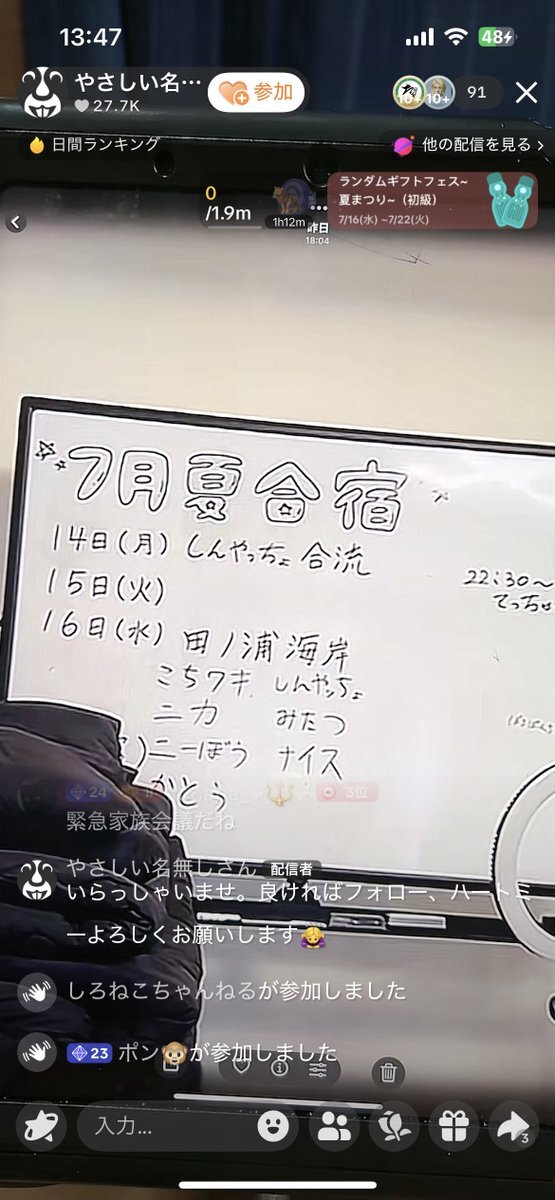 13:47
48
やさしい名…
27.7K
参加
10+
10+
91
日間ランキング
他の配信を見る
0
/1.9m
1h12m
昨日
18:04
ランダムギフトフェス~
夏まつり~（初級）
7/16(水) ~7/22(火)
7月夏合宿
14日(月) しんやっちょ 合流
22:30〜
てっちゃ
15日(火)
16日(水) 田ノ浦海岸
こちワキ しんやっちょ
ニカ みたつ
ニーぼう ナイス
かとう
24
3位
緊急家族会議だね
やさしい名無しさん 配信者
いらっしゃいませ。良ければフォロー、ハートミ
ーよろしくお願いします🙇‍♀️
しろねこちゃんねるが参加しました
23 ポン🐵が参加しました
入力...
3